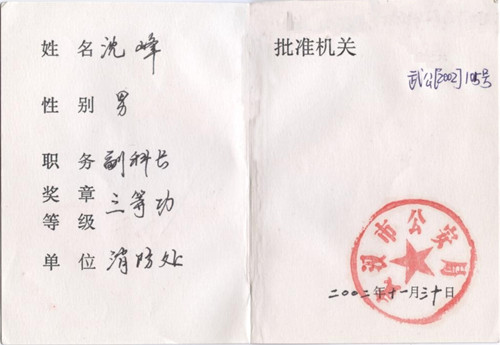 姓名 沈峰
性别 男
职务 副科长
奖章等级 三等功
单位 消防处
批准机关
武公[2002]105号
武汉市公安局
二〇〇二年十一月三十日